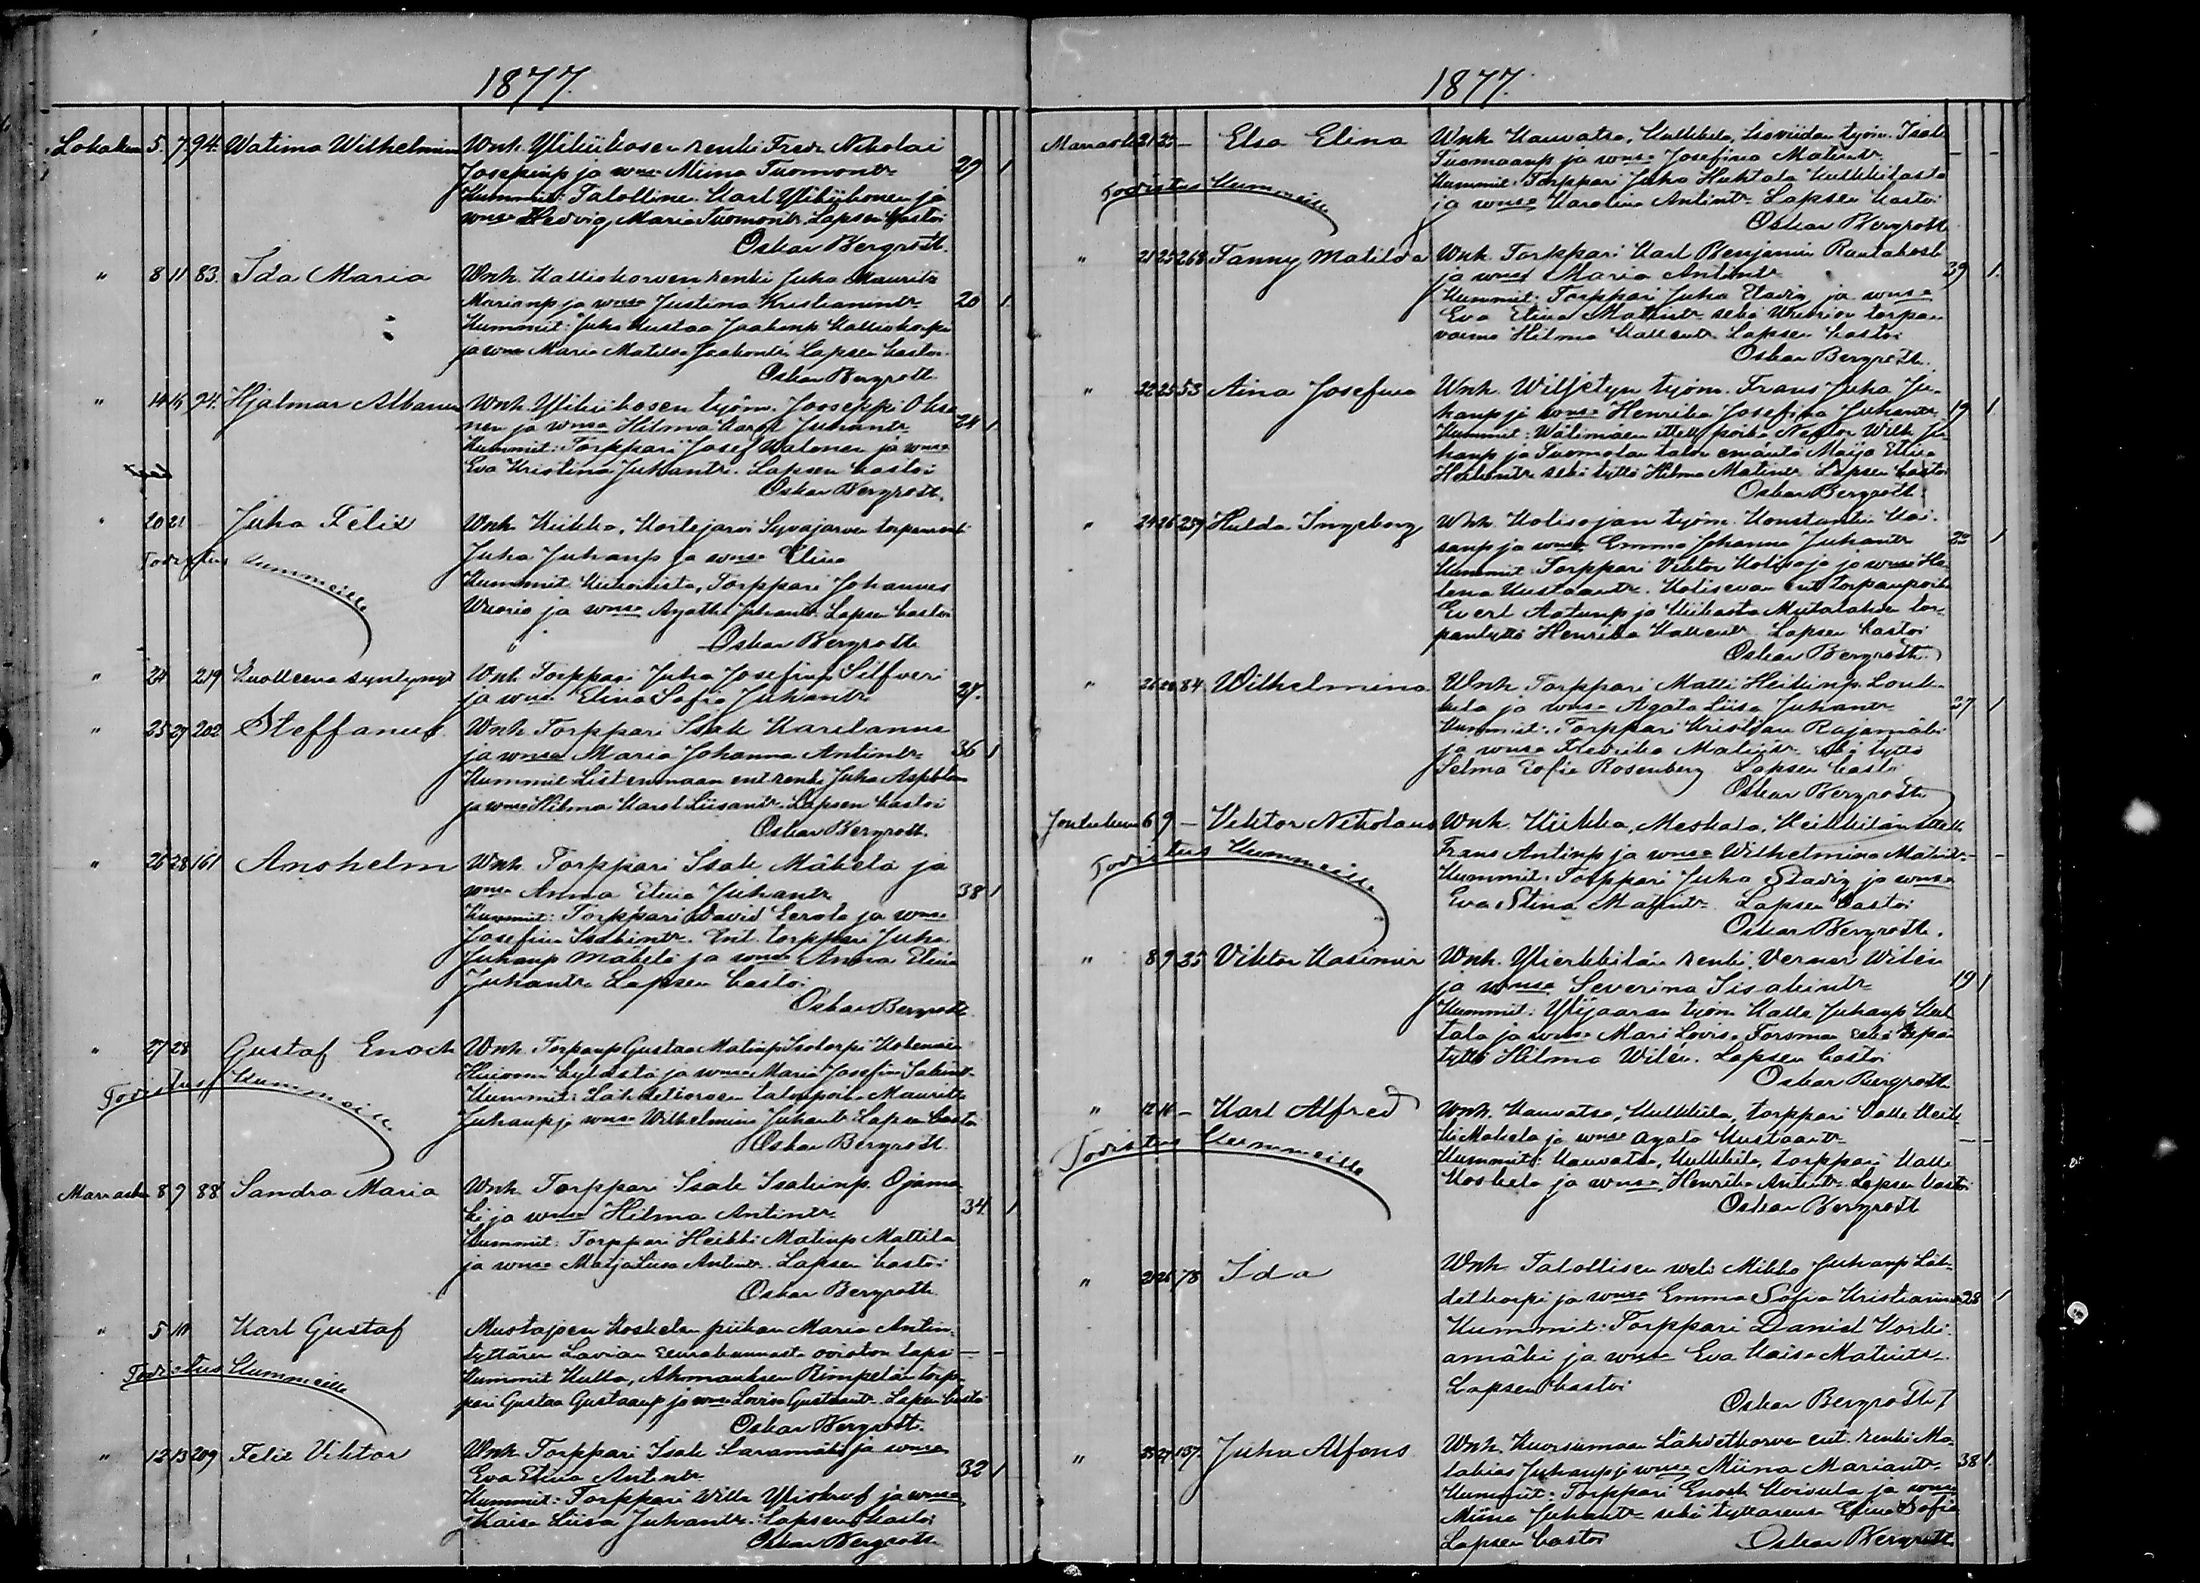 1877.
Lokakuu 5. 7. 94. Watima Wilhelmina Wnh. Ylikiikosen renki Fredr. Nikolai
Josefinp ja wmsa Miina Tuomontr. 29 1
Kummit: Talollinen Karl Ylikiikonen ja
wmsa Hedvig Maria Tuomontr. Lapsen kastoi
Oskar Bergroth.
" 8 11 83. Ida Maria Wnh. Kalliokorven renki Juha Mauritz
Marianp ja wmsa Justina Kristianintr. 20 1
Kummit: Juha Kustaa Jaakonp Kalliokorpi
ja wmsa Maria Matilda Jaakontr. Lapsen kastoi
Oskar Bergroth
" 14 16 94. Hjalmar Albanus Wnh. Ylikiikosen työm. Jooseppi
nen ja wmsa Hilma Karol. Juhantr. 24 1
Kummit: Torppari Josef Walonen ja wmsa
Eva Kristina Juhantr. Lapsen kastoi
Oskar Bergroth.
" 20 21 Juha Felix Wnh. Kiikka, Kortejärvi Syväjärven
Todistus Kummeille Juha Juhanp ja wmsa Elina
Kummit: Torppari Johannes
Wuorio ja wmsa Agatha Juhantr. Lapsen kastoi
Oskar Bergroth
" 24 219 Kuolleena syntynyt Wnh. Torppari Juha Josefinp Silfveri
ja wmsa Elina Sofia Juhantr. 24.
" 25 27 202 Steffanus Wnh. Torppari Isak Karelanus
ja wmsa Maria Johanna Antintr. 36 1
Kummit: Listenmaan ent. renki Juha
ja wmsa Hilma Karol. Liisantr. Lapsen kastoi
Oskar Bergroth.
" 26 28 161 Anshelm Wnh. Torppari Isak Mäkelä ja
wmsa Anna Elina Juhantr. 38 1
Kummit: Torppari David Eerola ja wmsa
Josefina Isakintr. Ent. torppari Juha
Juhanp Mäkelä ja wmsa Anna Elina
Juhantr. Lapsen kastoi
Oskar Bergroth
" 27 28 Gustaf Enoch Wnh. Torpanp Gustaa Matinp
Todistus Kummeille kylästä ja wmsa Maria Josefina
Kummit: Lähdekorven talonpoika Mauritz
Juhanp ja wmsa Wilhelmina Juhantr. Lapsen kastoi
Oskar Bergroth.
Marrasku 8 9 88 Sandra Maria Wnh. Torppari Isak Isakinp. Ojamä-
ki ja wmsa Hilma Antintr. 34. 1
Kummit: Torppari Heikki Matinp Mattila
ja wmsa Maija Liisa Antintr. Lapsen kastoi
Oskar Bergroth.
" 5 11 Karl Gustaf Mustajoen Koskelan piikan Maria Antin-
Todistus Kummeille tyttären Lavian seurakunnasta avioton lapsi — —
Kummit Kulla, Ahmauksen Rimpelän torp-
pari Gustaa Gustaanp ja wmsa Lovisa Gustaantr. Lapsen kastoi
Oskar Bergroth.
" 12 13 209 Felix Viktor Wnh. Torppari Isak Saramäki ja wmsa
Eva Elina Antintr. 32 1
Kummit: Torppari Wille Yliskrof ja wmsa
Kaisa Liisa Juhantr. Lapsen kastoi
Oskar Bergroth
1877.
Marrask. 21 25 — Elsa Elina Wnh. Kauvatsa, Kulkkila, työm. Isak
Todistus Kummeille Tuomaanp ja wmsa Josefina Matintr. — —
Kummit: Torppari Juha Huhtala Kulkkilasta
ja wmsa Karolina Antintr. Lapsen kastoi
Oskar Bergroth
" 21 25 268 Fanny Matilda Wnh. Torppari Karl Benjamin Rautakoski
ja wmsa Maria Antintr. 39 1.
Kummit: Torppari Juha Stadig ja wmsa
Eva Stina Matintr. sekä Wuorion torpan
vaimo Hilma Kallentr. Lapsen kastoi
Oskar Bergroth.
" 22 25 53 Aina Josefina Wnh. työm. Frans Juha Ju-
hanp ja wmsa Henrika Josefina Juhantr. 19 1
Kummit: Wälimäen poika Nestor Wilh. Ju-
hanp ja Suomolan talon emäntä Maija Stina
Heikintr. sekä tyttö Hilma Matintr. Lapsen kastoi
Oskar Bergroth.
" 24 26 259 Hulda Ingeborg Wnh. Kolisojan työm. Konstantin
sanp ja wmsa Emma Johanna Juhantr. 22 1
Kummit Torppari Viktor Kolisoja ja wmsa He-
lena Kustaantr. ent. torpanpoika
Evert Aatunp ja Kiikasta tor-
pantyttö Henrika Kallentr. Lapsen kastoi
Oskar Bergroth.
" 26 28 84 Wilhelmina Wnh. Torppari Matti Heikinp. Louk-
kula ja wmsa Agata Liisa Juhantr. 27 1
Kummit: Torppari Kristian Rajamäki
ja wmsa Fredrika Matintr. sekä tyttö
Selma Sofia Rosenberg. Lapsen kastoi
Oskar Bergroth
Joulukuu 6 9 — Viktor Nikolaus Wnh. Kiikka, Meskala, Heikkilän
Todistus Kummeille Frans Antinp ja wmsa Wilhelmina Matintr. — —
Kummit: Torppari Juha Stadig ja wmsa
Eva Stina Matintr. Lapsen kastoi
Oskar Bergroth.
" 8 9 35 Viktor Kasimir Wnh. Ylierkkilän renki Verner Wilén
ja wmsa Severina Iisakintr. 19 1
Kummit: Ylijaaran työm. Kalle Juhanp
tala ja wmsa Mari Lovisa Forsman sekä
tyttö Hilma Wilén. Lapsen kastoi
Oskar Bergroth
" 12 16 — Karl Alfred Wnh. Kauvatsa, Kulkkila, torppari Kalle
Todistus Kummeille Mäkelä ja wmsa Agata Kustaantr. — —
Kummit: Kauvatsa, Kulkkila, torppari Kalle
Koskela ja wmsa Henrika Antintr. Lapsen kastoi
Oskar Bergroth
" 21 26 78 Ida Wnh. Talollisen veli Mikko Juhanp Läh-
detkorpi ja wmsa Emma Sofia Kristianintr. 28 1
Kummit: Torppari Daniel Korki-
amäki ja wmsa Eva Kaisa Matintr.
Lapsen kastoi
Oskar Bergroth
" 25 27 157. Juha Alfons Wnh. Kuorsumaan Lähdetkorven ent. renki Ma-
tabias Juhanp ja wmsa Miina Mariantr. 38 1.
Kummit: Torppari Enoch Koivula ja wmsa
Miina Juhantr. sekä tyttärensä Elina Sofia
Lapsen kastoi Oskar Bergroth